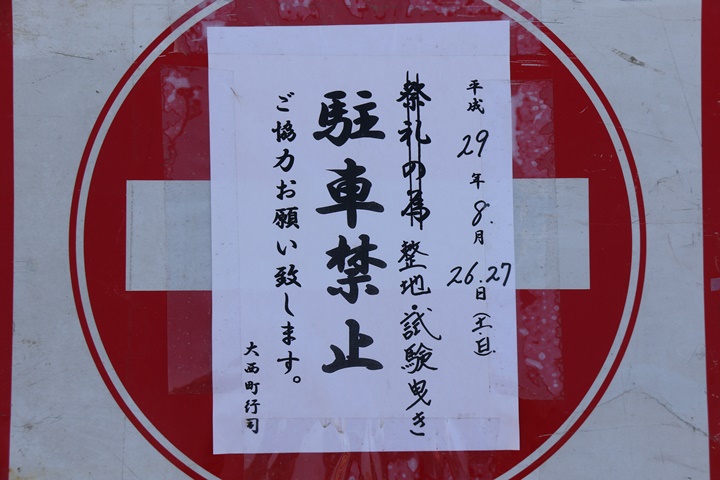 平成29年8.月26.27日(土.日)
祭礼の為整地.試験曳き
駐車禁止
ご協力お願い致します。
大西町行司